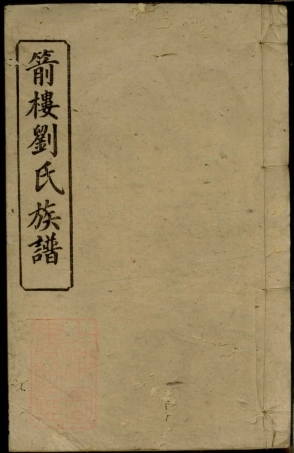 箭樓劉氏族譜